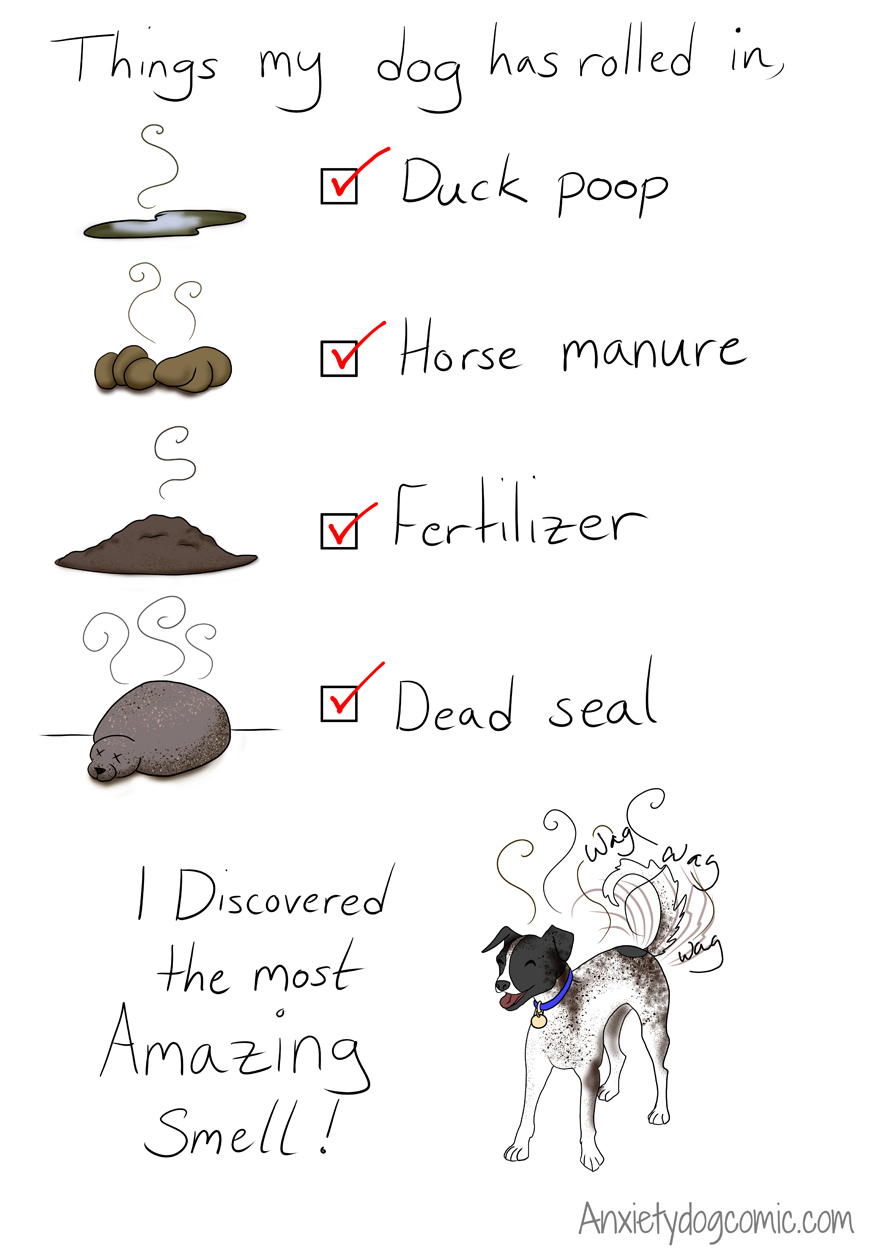 Things my dog has rolled in,
Duck poop
Horse manure
Fertilizer
Dead seal
wag
wag
wag
I Discovered
the most
Amazing
Smell!
Anxietydogcomic.com